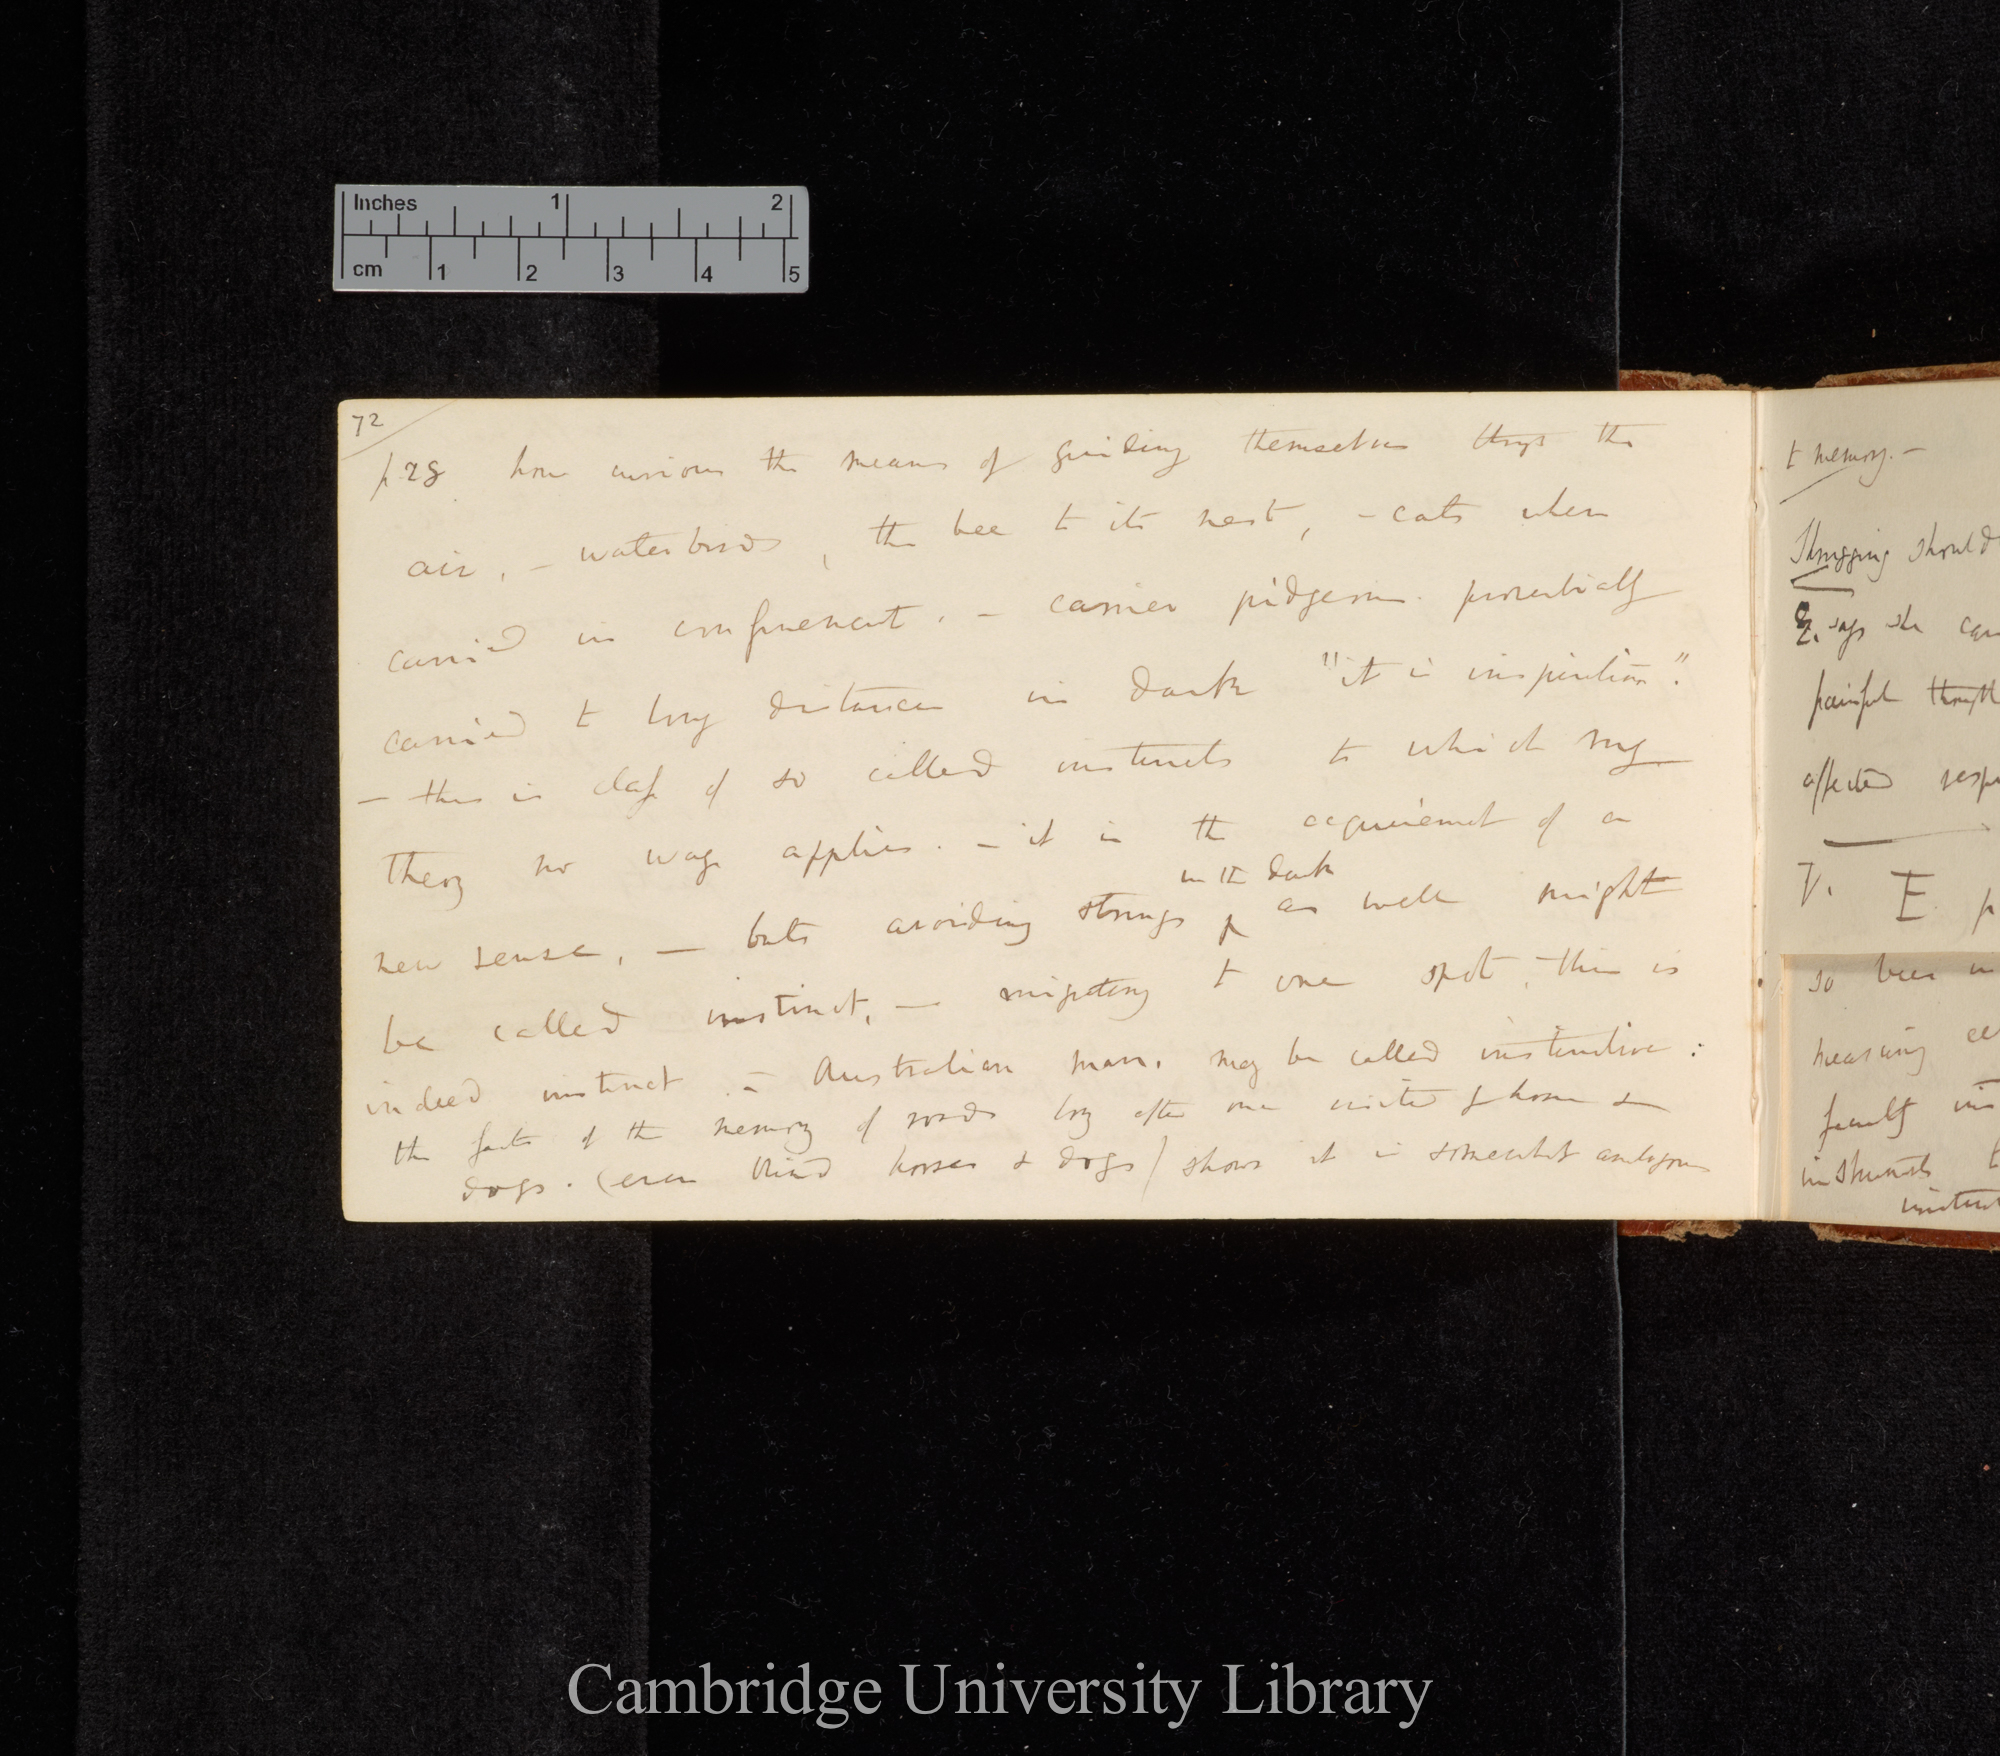 Inches 1 2
cm 1 2 3 4 5
72
p. 28 how curious the means of guiding themselves through the
air, — water birds, the bee to its nest, — cats when
carried in confinement. — carrier pidgeons proverbially
carried to long distances in dark "it is inspiration".
— this is class of so called instincts to which my
theory no way applies. — it is the acquirement of a
new sense, — bats avoiding strings in the dark as well might
be called instinct, — migrating to one spot, this is
indeed instinct — Australian man. may be called instinctive:
the facts of the memory of roads long after one visited by horses &
dogs. (even blind horses & dogs) shows it is somewhat analogous
to memory. —
Shrugging should
E. says she can
painful
affected
7. E p
so bees in
hearing
faculty
instruments t
Cambridge University Library